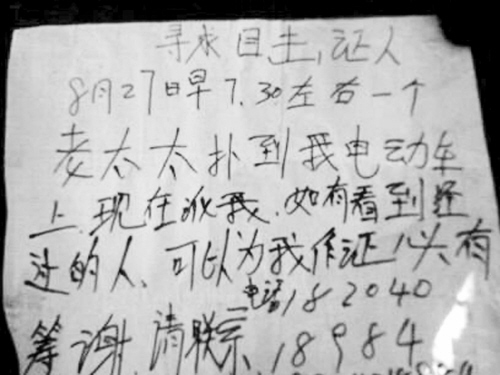 寻求目击证人
8月27日早7.30左右一个
老太太扑到我电动车
上.现在讹我.如有看到经
过的人、可以为我作证必有
电话182040
筹谢.请联系.18984